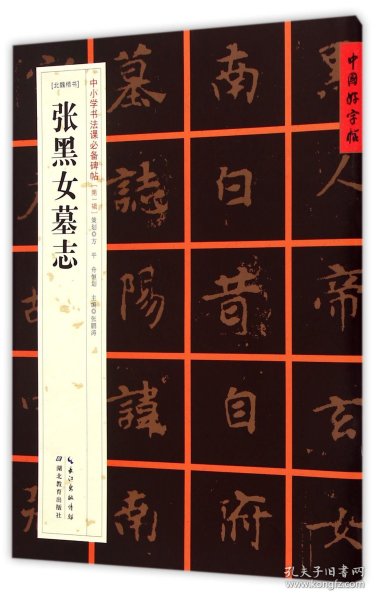 中國好字帖
[北魏楷书]
张黑女墓志
中小学书法课必备碑帖
[第一辑]
策划◎方平 舟恒划 主编◎张鹏涛
长江出版传媒
湖北教育出版社
帝
女
南
白
昔
自
府
墓
陽
諱
南
孔夫子旧书网
www.kongfz.com